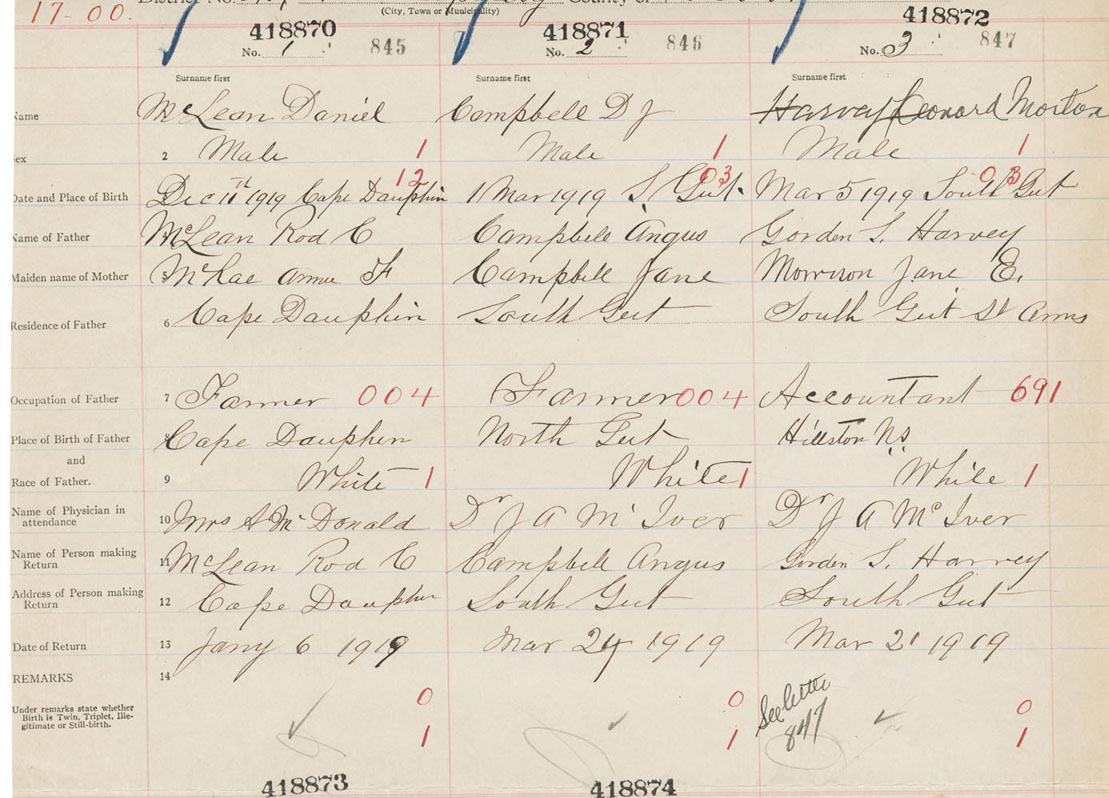 17-00.
District No. County of
(City, Town or Municipality)
418870 418871 418872
No. 1 845 No. 2 846 No. 3 847
Surname first Surname first Surname first
Name McLean Daniel Campbell D J Harvey Leonard Morton
Sex 2 Male 1 Male 1 Male 1
12 03 03
Date and Place of Birth Dec 11th 1919 Cape Dauphin 11 Mar 1919 S. Gut. Mar 5 1919 South Gut
Name of Father McLean Rod C Campbell Angus Gorden S. Harvey
Maiden name of Mother 5 McRae Annie F Campbell Jane Morrison Jane E.
Residence of Father 6 Cape Dauphin South Gut South Gut St Anns
Occupation of Father 7 Farmer 004 Farmer 004 Accountant 691
Place of Birth of Father 8 Cape Dauphin North Gut Hillston N.S
and
Race of Father. 9 White 1 White 1 White 1
Name of Physician in
attendance 10 Mrs A McDonald Dr J A McIver Dr J A McIver
Name of Person making
Return 11 McLean Rod C Campbell Angus Gorden S. Harvey
Address of Person making
Return 12 Cape Dauphin South Gut South Gut
Date of Return 13 Jany 6 1919 Mar 24 1919 Mar 21 1919
REMARKS 14
Under remarks state whether
Birth is Twin, Triplet, Ille-
gitimate or Still-birth.
0 0 0
See letter
847
1 1 1
418873 418874